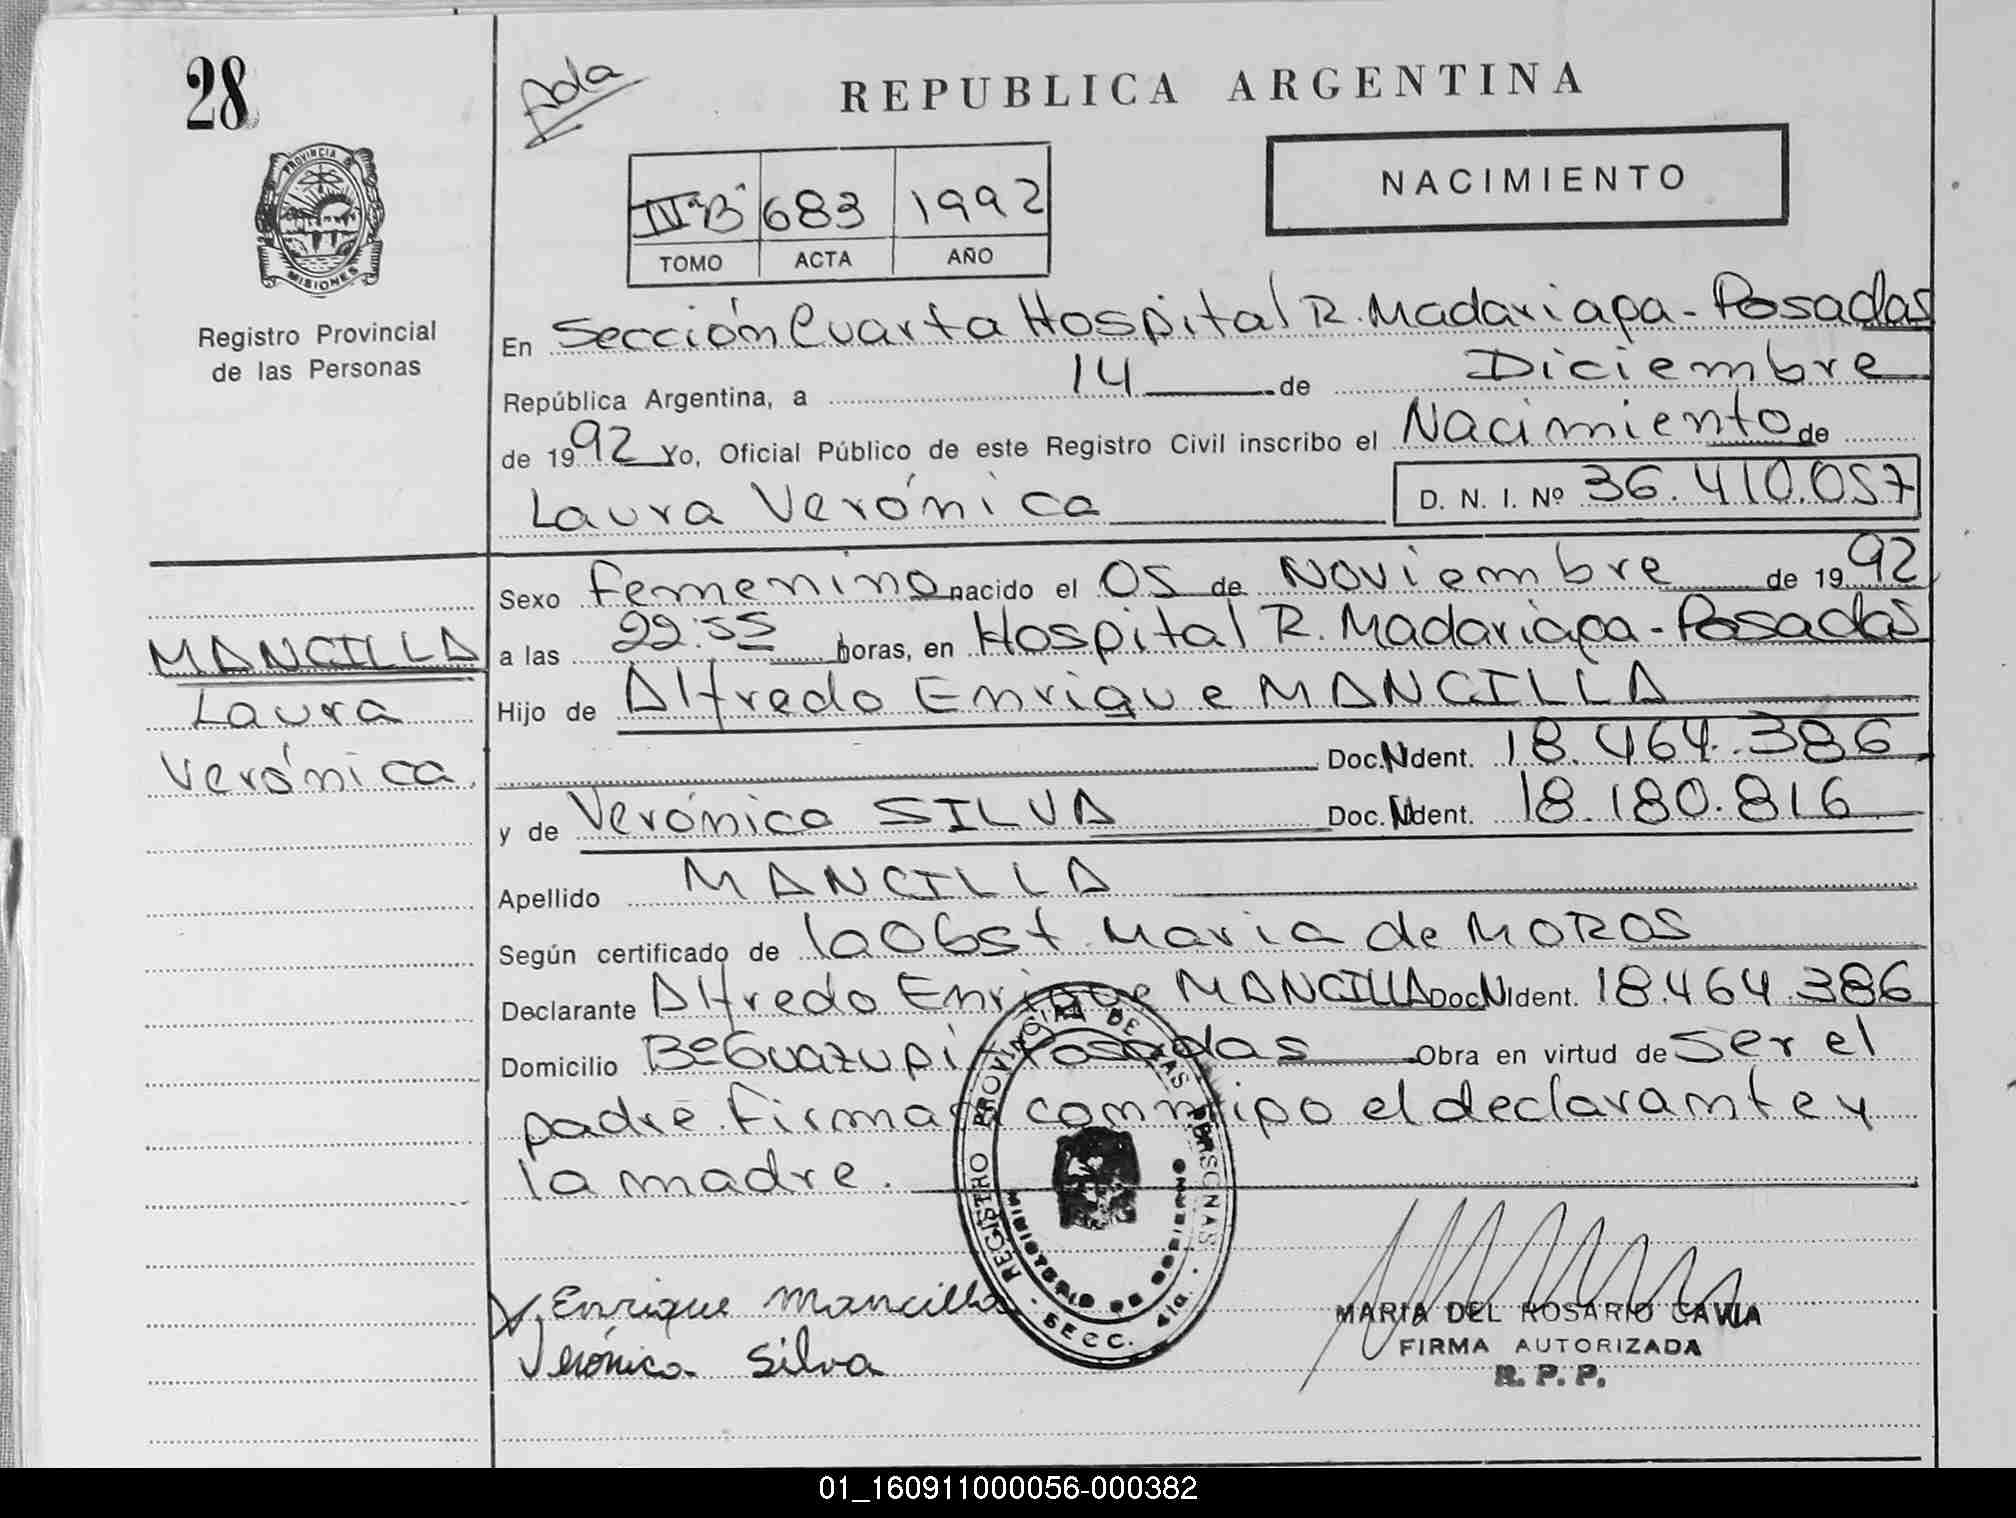 28
Ada
REPUBLICA ARGENTINA
PROVINCIA D
MISIONES
IIIªB 683 1992
TOMO ACTA AÑO
NACIMIENTO
Registro Provincial
de las Personas
En Sección Cuarta Hospital R. Madariaga - Posadas
República Argentina, a 14 de Diciembre
de 1992 Yo, Oficial Público de este Registro Civil inscribo el Nacimiento de
Laura Verónica D. N. I. Nº 36.410.057
Sexo femenino nacido el 05 de Noviembre de 1992
MANCILLA
Laura
Verónica.
a las 22:55 horas, en Hospital R. Madariaga - Posadas
Hijo de Alfredo Enrique MANCILLA
Doc. N Ident. 18.464.386
y de Verónica SILVA Doc. N Ident. 18.180.816
Apellido MANCILLA
Según certificado de la Obst Maria de MOROS
Declarante Alfredo Enrique MANCILLA Doc N Ident. 18.464.386
Domicilio Bº Guazupi Posadas Obra en virtud de ser el
padre. Firman conmigo el declarante y
la madre.
REGISTRO PROVINCIAL DE LAS PERSONAS
MINISTERIO DE GOBIERNO
SECC. 4ta.
Enrique Mancilla
Verónica Silva
MARIA DEL ROSARIO GAVIA
FIRMA AUTORIZADA
R. P. P.
01_160911000056-000382